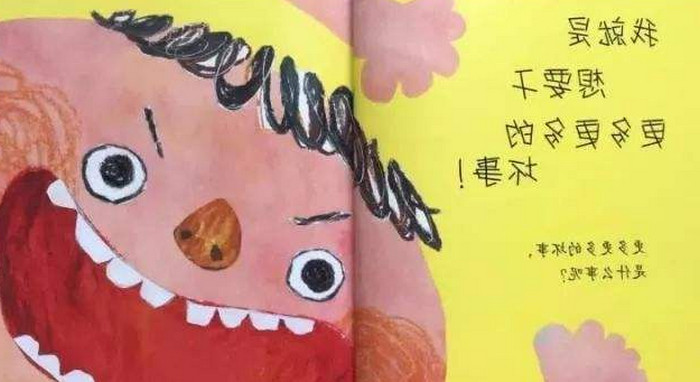 我就是
想要干
更多更多的
坏事!
更多更多的坏事,
是什么事呢?